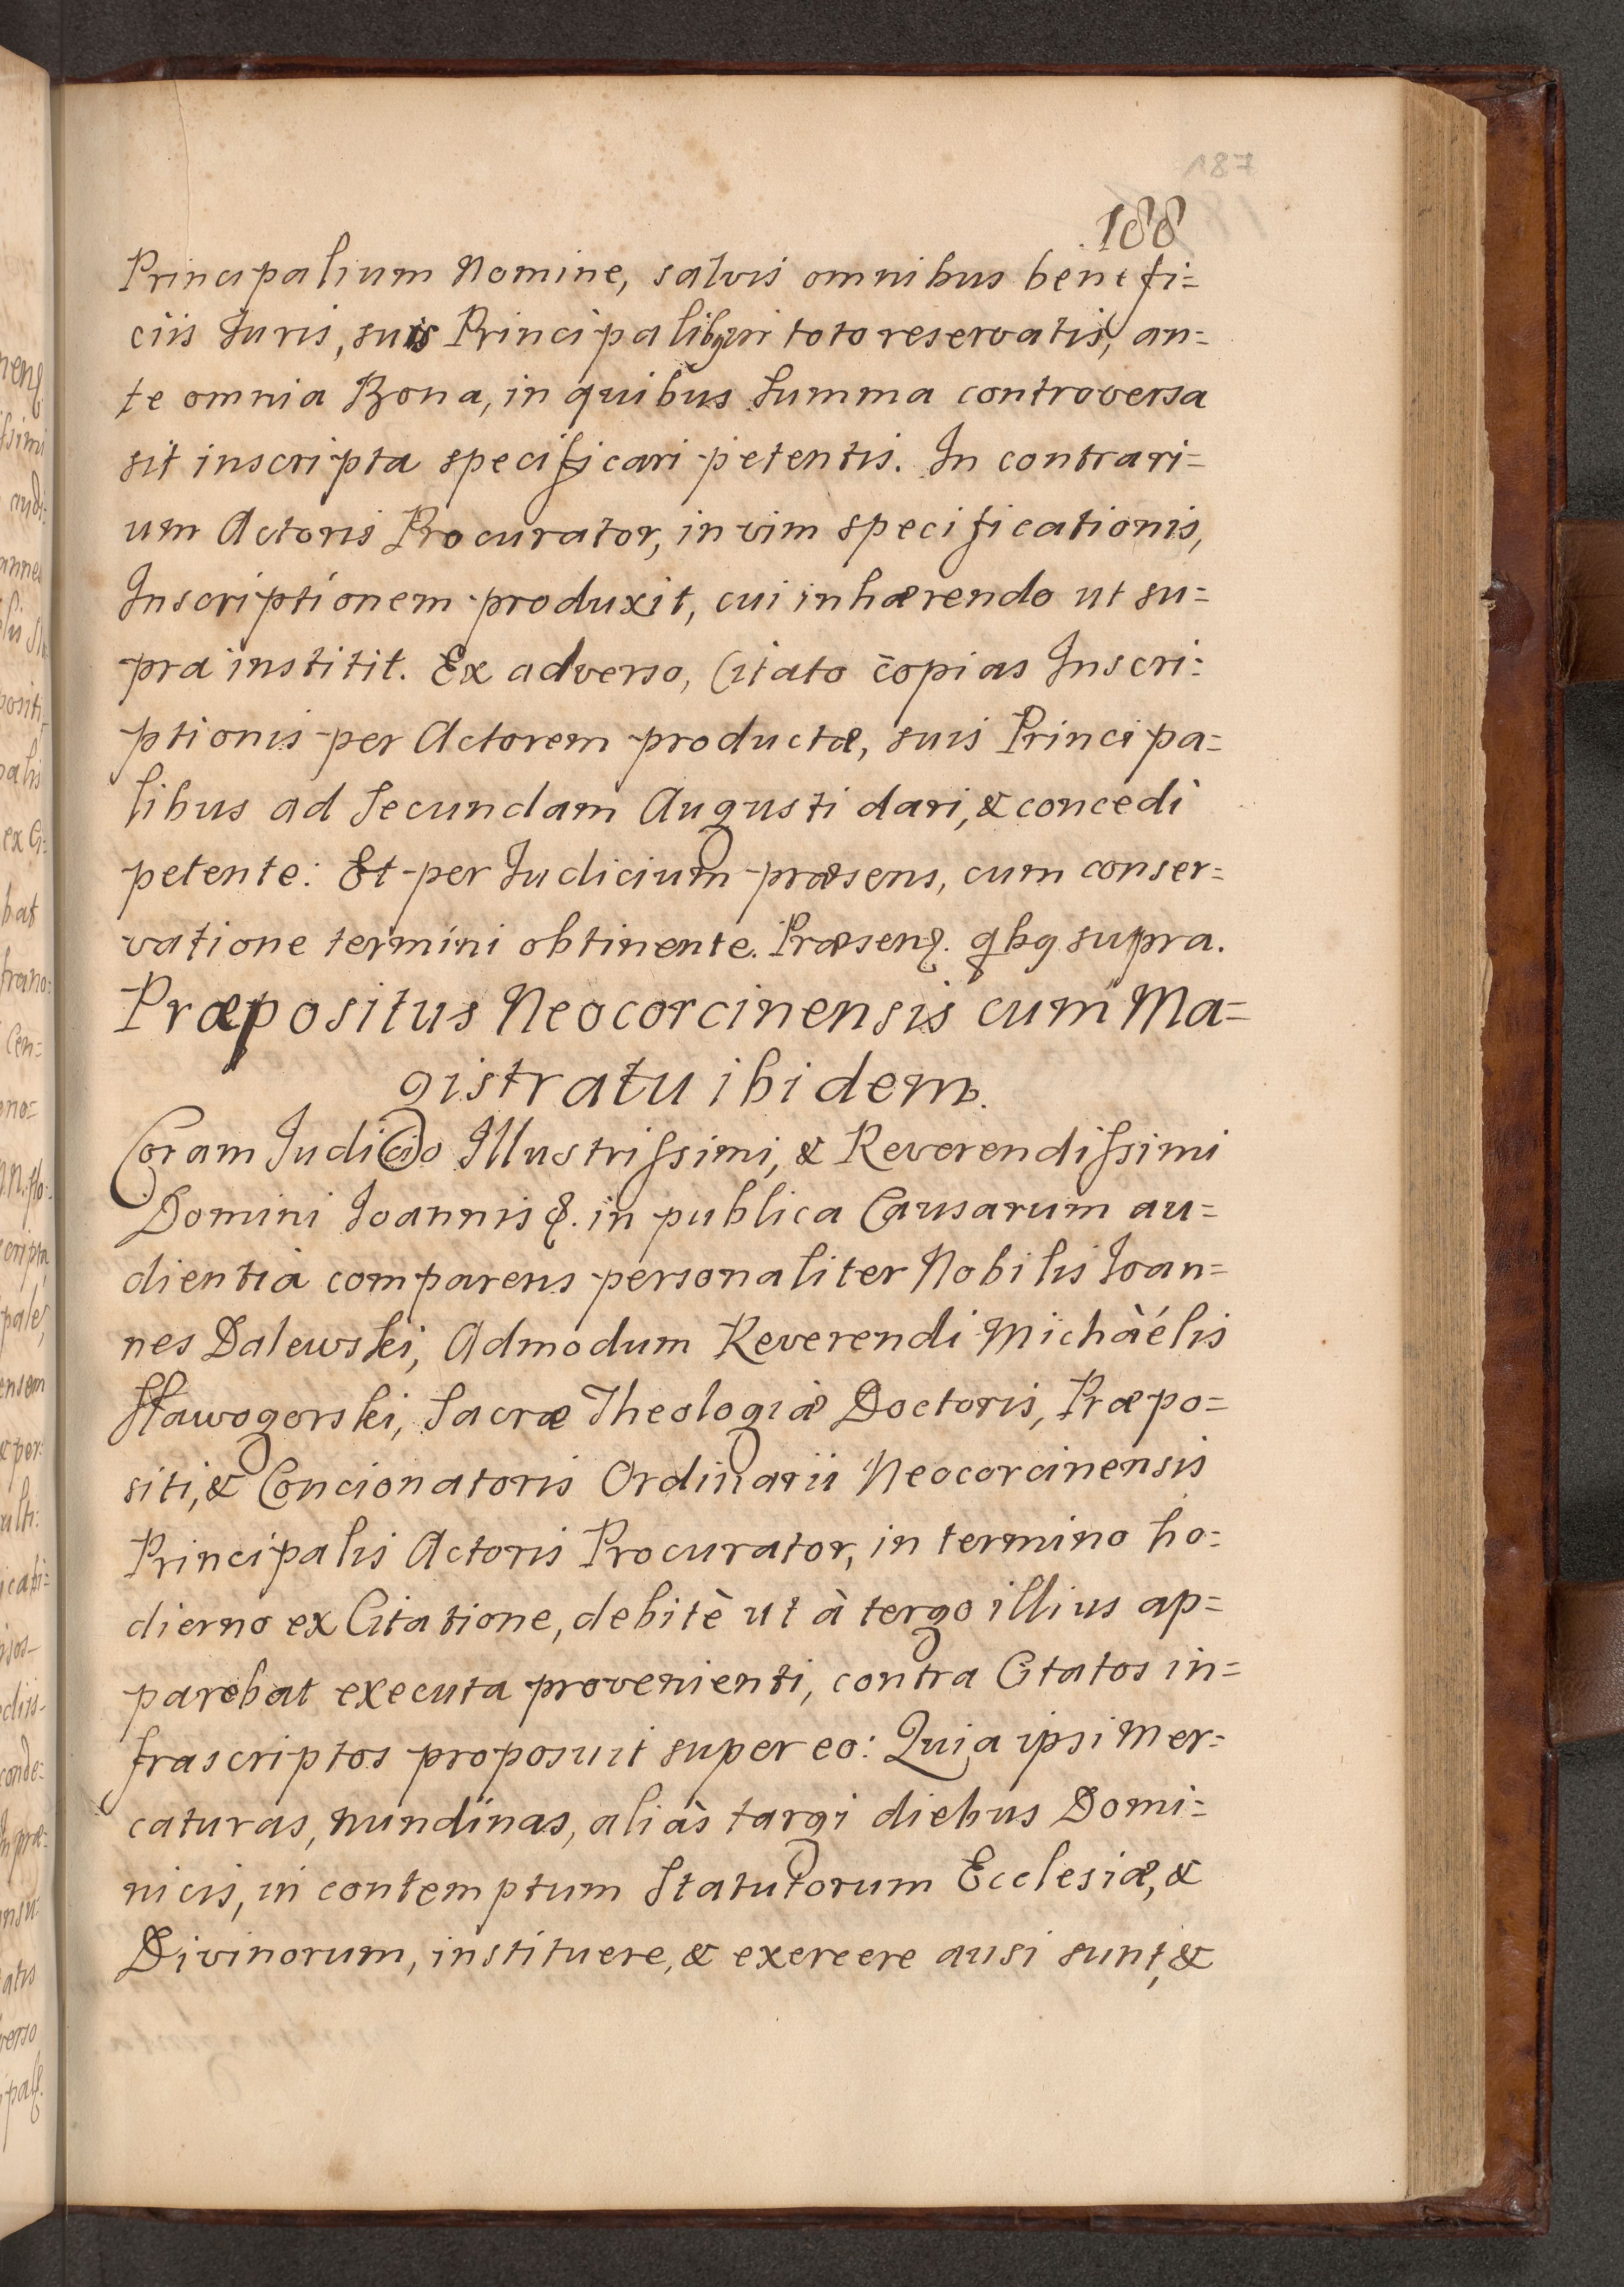 188
Principalium Nomine, salvis omnibus benefi=
ciis Juris, suis Principalibg in toto reservatis, an=
te omnia Bona, in quibus Summa controversa
sit inscripta specificari petentis. In contrari=
um Actoris Procurator, in vim specificationis,
Inscriptionem produxit, cui inhærendo ut su=
pra institit. Ex adverso, Citato copias Inscri=
ptionis per Actorem productæ, suis Principa=
libus ad Secundam Augusti dari, & concedi
petente: Et per Judicium præsens, cum conser=
vatione termini obtinente. Præsen. qbg supra.
Præpositus Neocorcinensis cum Ma=
gistratu ibidem.
Coram Judicio Illustrissimi, & Reverendissimi
Domini Joannis &. in publica Causarum au=
dientia comparens personaliter Nobilis Joan=
nes Dalewski, Admodum Reverendi Michàélis
Sławogorski, Sacræ Theologiæ Doctoris, Præpo=
siti, & Concionatoris Ordinarii Neocorcinensis
Principalis Actoris Procurator, in termino ho=
dierno ex Citatione, debitè ut à tergo illius ap=
parebat executa provenienti, contra Citatos in=
frascriptos proposuit super eo: Quia ipsi Mer=
caturas, nundinas, aliàs targi diebus Domi=
nicis, in contemptum Statutorum Ecclesiæ, &
Divinorum, instituere, & exercere ausi sunt, &